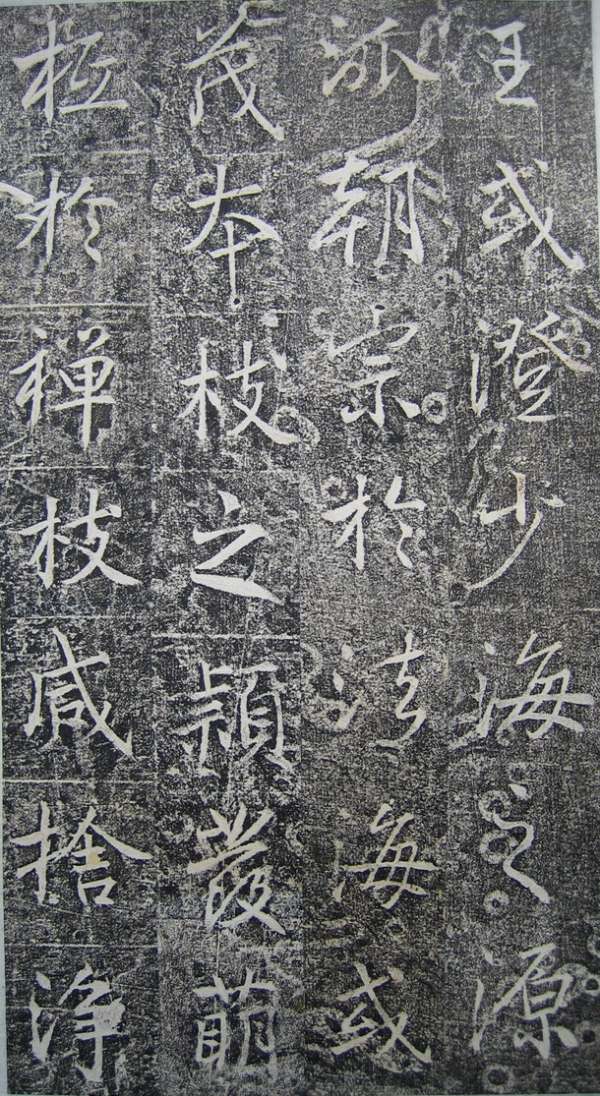 王或澄少海之源
派朝宗於法海或
茂本枝之頴發萌
柢於禪枝咸捨淨